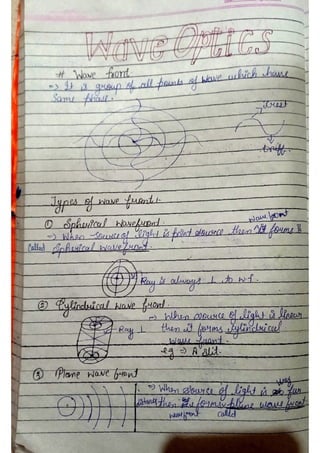 Wave Optics
# Wave front
=> It is group of all points of wave which have
same phase.
crest
truff
Types of wave front:
① Spherical wavefront.
-> When source of light is point source then it forms is
wavefront
called Spherical wavefront.
Ray is always ⊥ to w.f.
② Cylindrical wave front.
-> When source of light is linear
Ray ⊥ then it forms cylindrical
wave front
eg => A slit.
③ Plane wave front
-> When source of light is far
way
distance then the former plane wave front
wavefront called